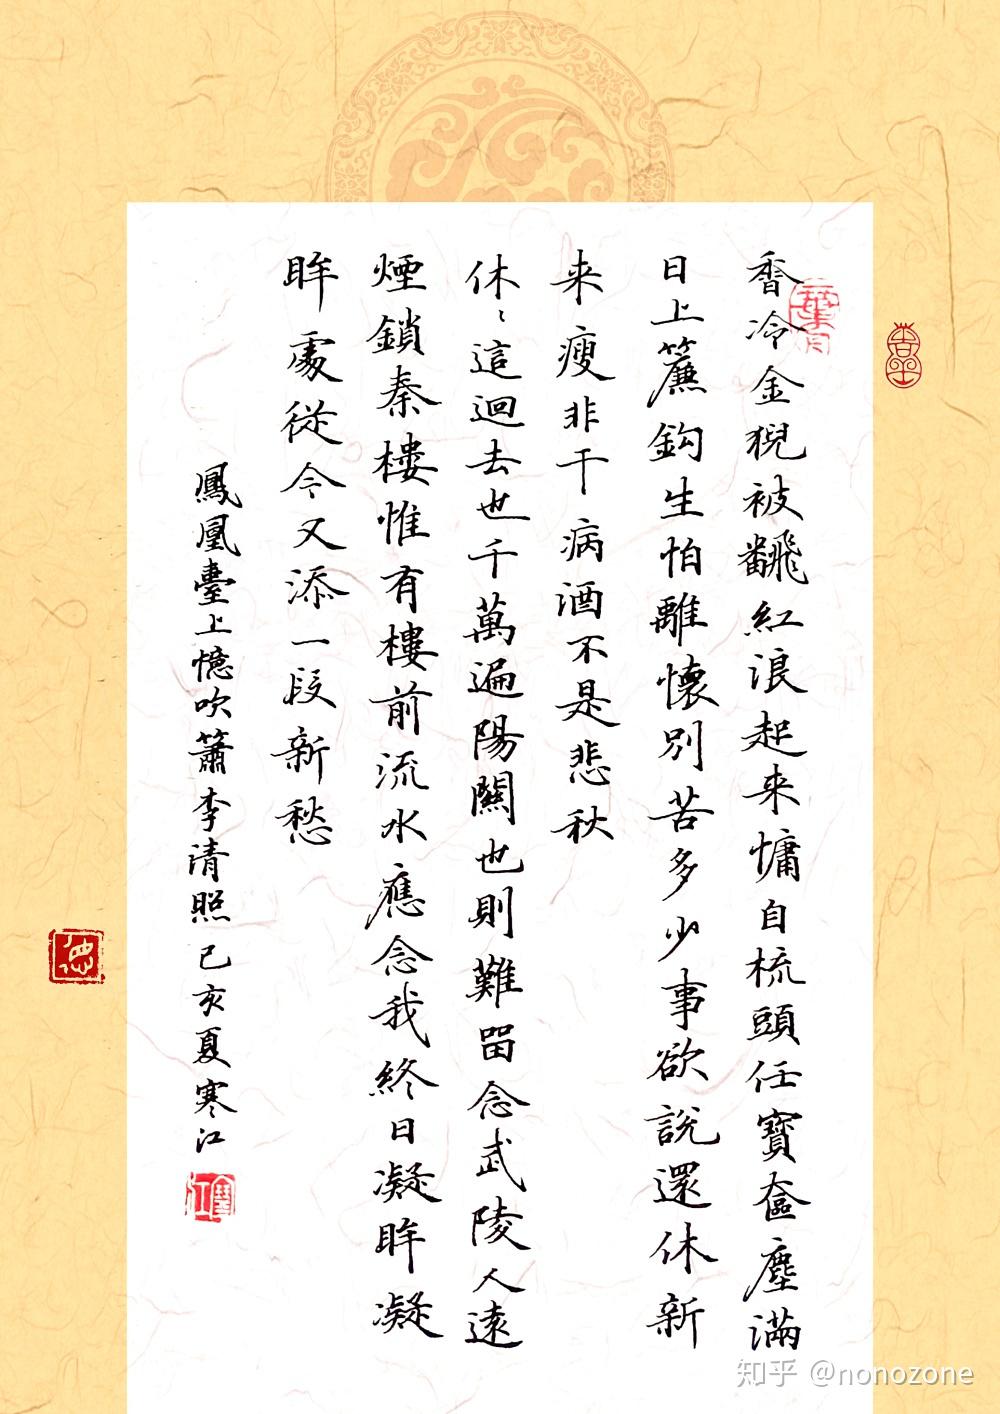 香冷金猊被飜紅浪起来慵自梳頭任寶奩塵滿
日上簾鈎生怕離懷別苦多少事欲說還休新
来瘦非干病酒不是悲秋
休〻這迴去也千萬遍陽關也則難留念武陵人遠
煙鎖秦樓惟有樓前流水應念我終日凝眸凝
眸處從今又添一段新愁
鳳凰臺上憶吹簫李清照己亥夏寒江
寒江
知乎 @nonozone